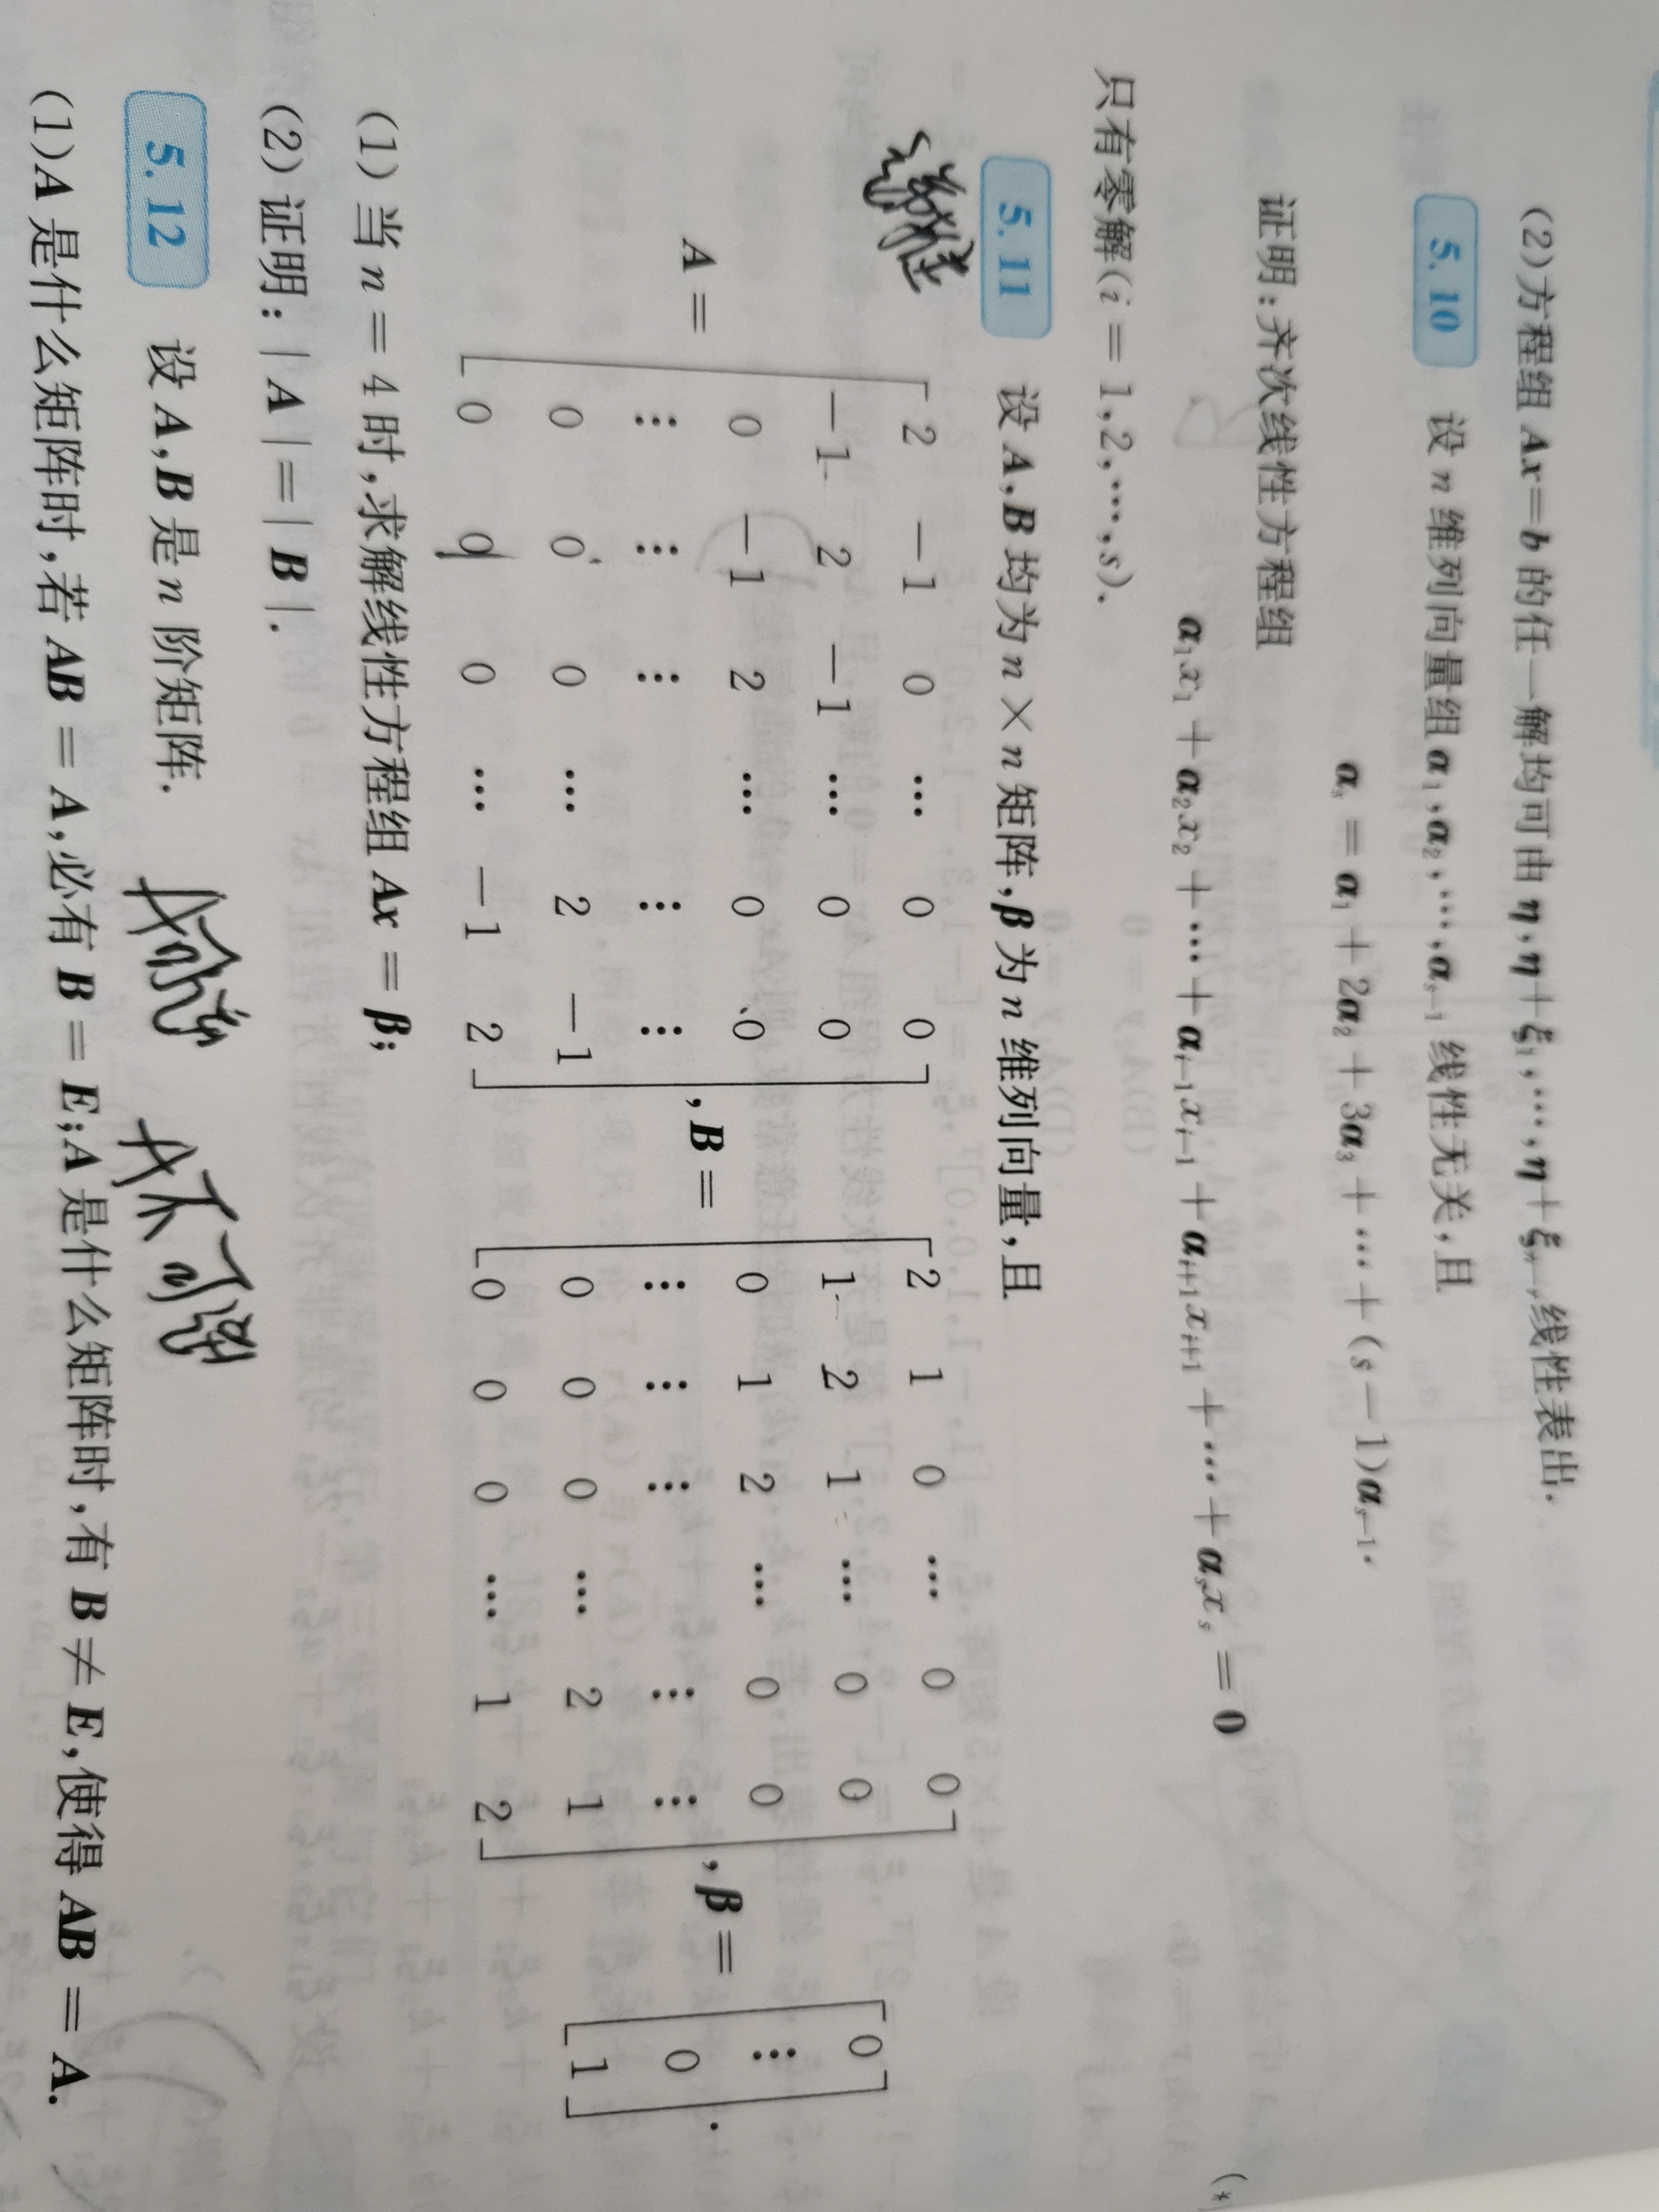 (2)方程组 Ax=b 的任一解均可由 η,η+ξ₁,…,η+ξₙ₋ᵣ线性表出.
5.10 设 n 维列向量组 α₁,α₂,…,αₛ₋₁ 线性无关,且
αₛ = α₁ + 2α₂ + 3α₃ + … + (s−1)αₛ₋₁.
证明:齐次线性方程组
α₁x₁ + α₂x₂ + … + αᵢ₋₁xᵢ₋₁ + αᵢ₊₁xᵢ₊₁ + … + αₛxₛ = 0
(*
只有零解(i = 1,2,…,s).
5.11 设 A,B 均为 n × n 矩阵,β 为 n 维列向量,且
2 −1 0 … 0 0 2 1 0 … 0 0
−1 2 −1 … 0 0 1 2 1 … 0 0 0
A = 0 −1 2 … 0 0 ,B = 0 1 2 … 0 0 ,β = ⋮ .
⋮ ⋮ ⋮ ⋮ ⋮ ⋮ ⋮ ⋮ ⋮ ⋮ 0
0 0 0 … 2 −1 0 0 0 … 2 1 1
0 0 0 … −1 2 0 0 0 … 1 2
(1) 当 n = 4 时,求解线性方程组 Ax = β;
(2) 证明:| A | = | B |.
5.12 设 A,B 是 n 阶矩阵.
A可逆 A不可逆
(1)A 是什么矩阵时,若 AB = A,必有 B = E;A 是什么矩阵时,有 B ≠ E,使得 AB = A.